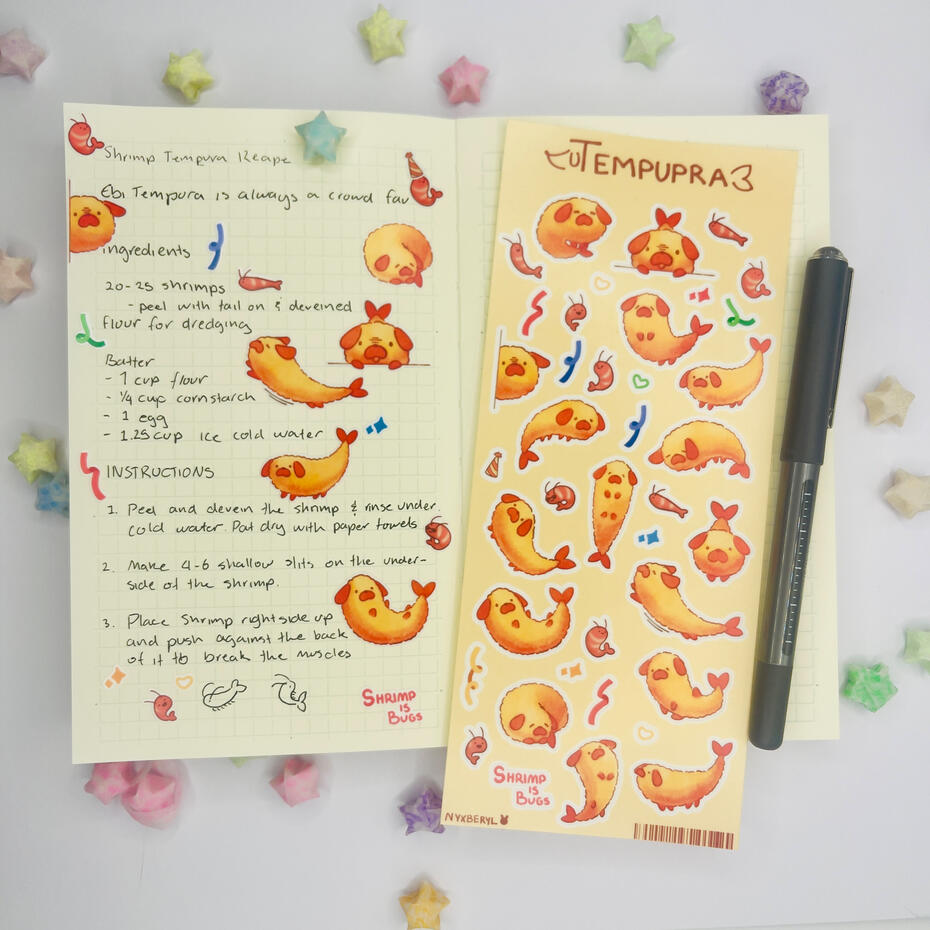 Shrimp Tempura Recipe
Ebi Tempura is always a crowd fav
ingredients
20-25 shrimps
- peel with tail on & deveined
flour for dredging
Batter
- 1 cup flour
- 1/4 cup cornstarch
- 1 egg
- 1.25 cup ice cold water
INSTRUCTIONS
1. Peel and devein the shrimp & rinse under
cold water. Pat dry with paper towels
2. Make 4-6 shallow slits on the under-
side of the shrimp.
3. Place Shrimp rightside up
and push against the back
of it to break the muscles
SHRIMP
IS
BUGS
TEMPUPRA
SHRIMP
IS
BUGS
NYXBERYL